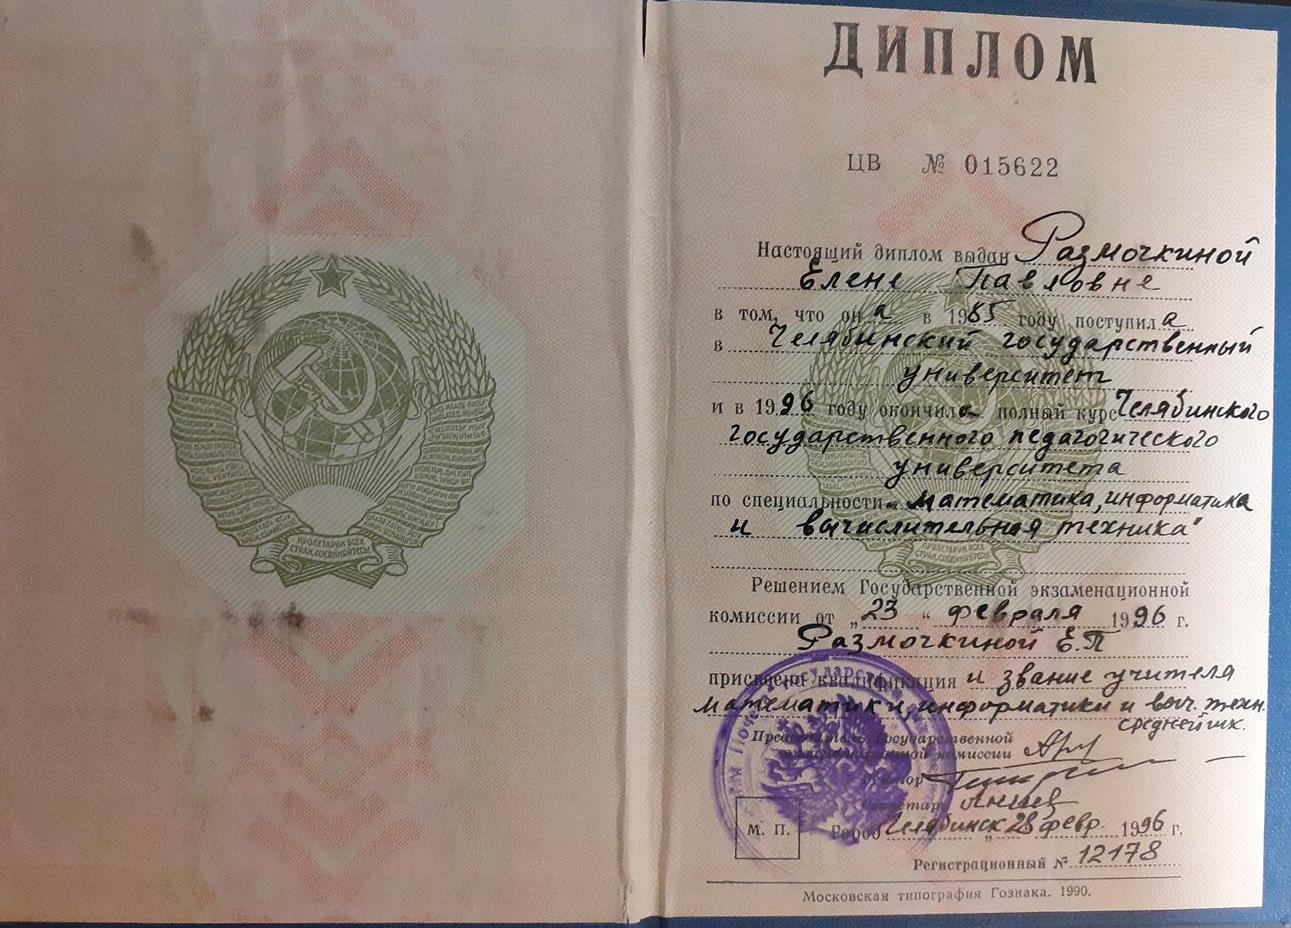 ПРОЛЕТАРИИ ВСЕХ
СТРАН, СОЕДИНЯЙТЕСЬ!
ДИПЛОМ
ЦВ № 015622
Настоящий диплом выдан Размочкиной
Елене Павловне
в том, что она в 1985 году поступила
в Челябинский государственный
университет
и в 1996 году окончила полный курс Челябинского
государственного педагогического
университета
по специальности „математика, информатика
и вычислительная техника"
Решением Государственной экзаменационной
комиссии от „23" февраля 1996 г.
Размочкиной Е.П
присвоена квалификация и звание учителя
математики, информатики и выч. техн.
средней шк.
Председатель Государственной
экзаменационной комиссии
Ректор
Секретарь
М. П. Город Челябинск „28 февр. 1996 г.
Регистрационный № 12178
Московская типография Гознака. 1990.